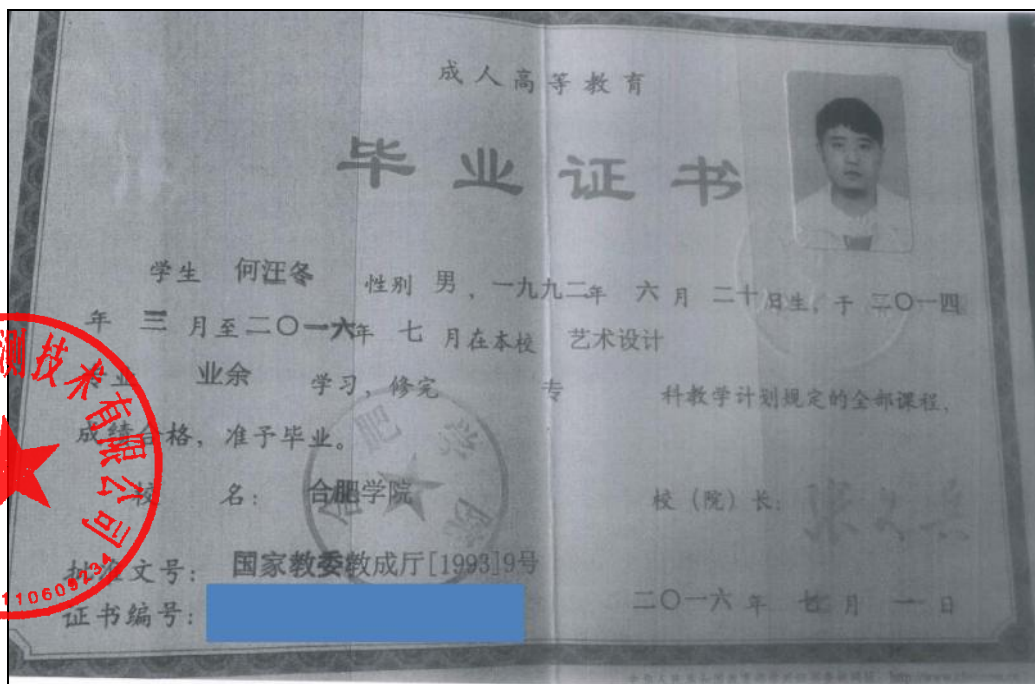 成人高等教育
毕业证书
学生 何汪冬 性别 男，一九九二年 六月 二十日生，于 二〇一四
年 三 月至二〇一六年 七 月在本校 艺术设计
专业 业余 学习，修完 专 科教学计划规定的全部课程，
成绩合格，准予毕业。
校 名： 合肥学院
校（院）长：
批准文号： 国家教委教成厅[1993]9号
证书编号：
二〇一六年 七月 一日
测技术有限公司
110609234
合肥学院